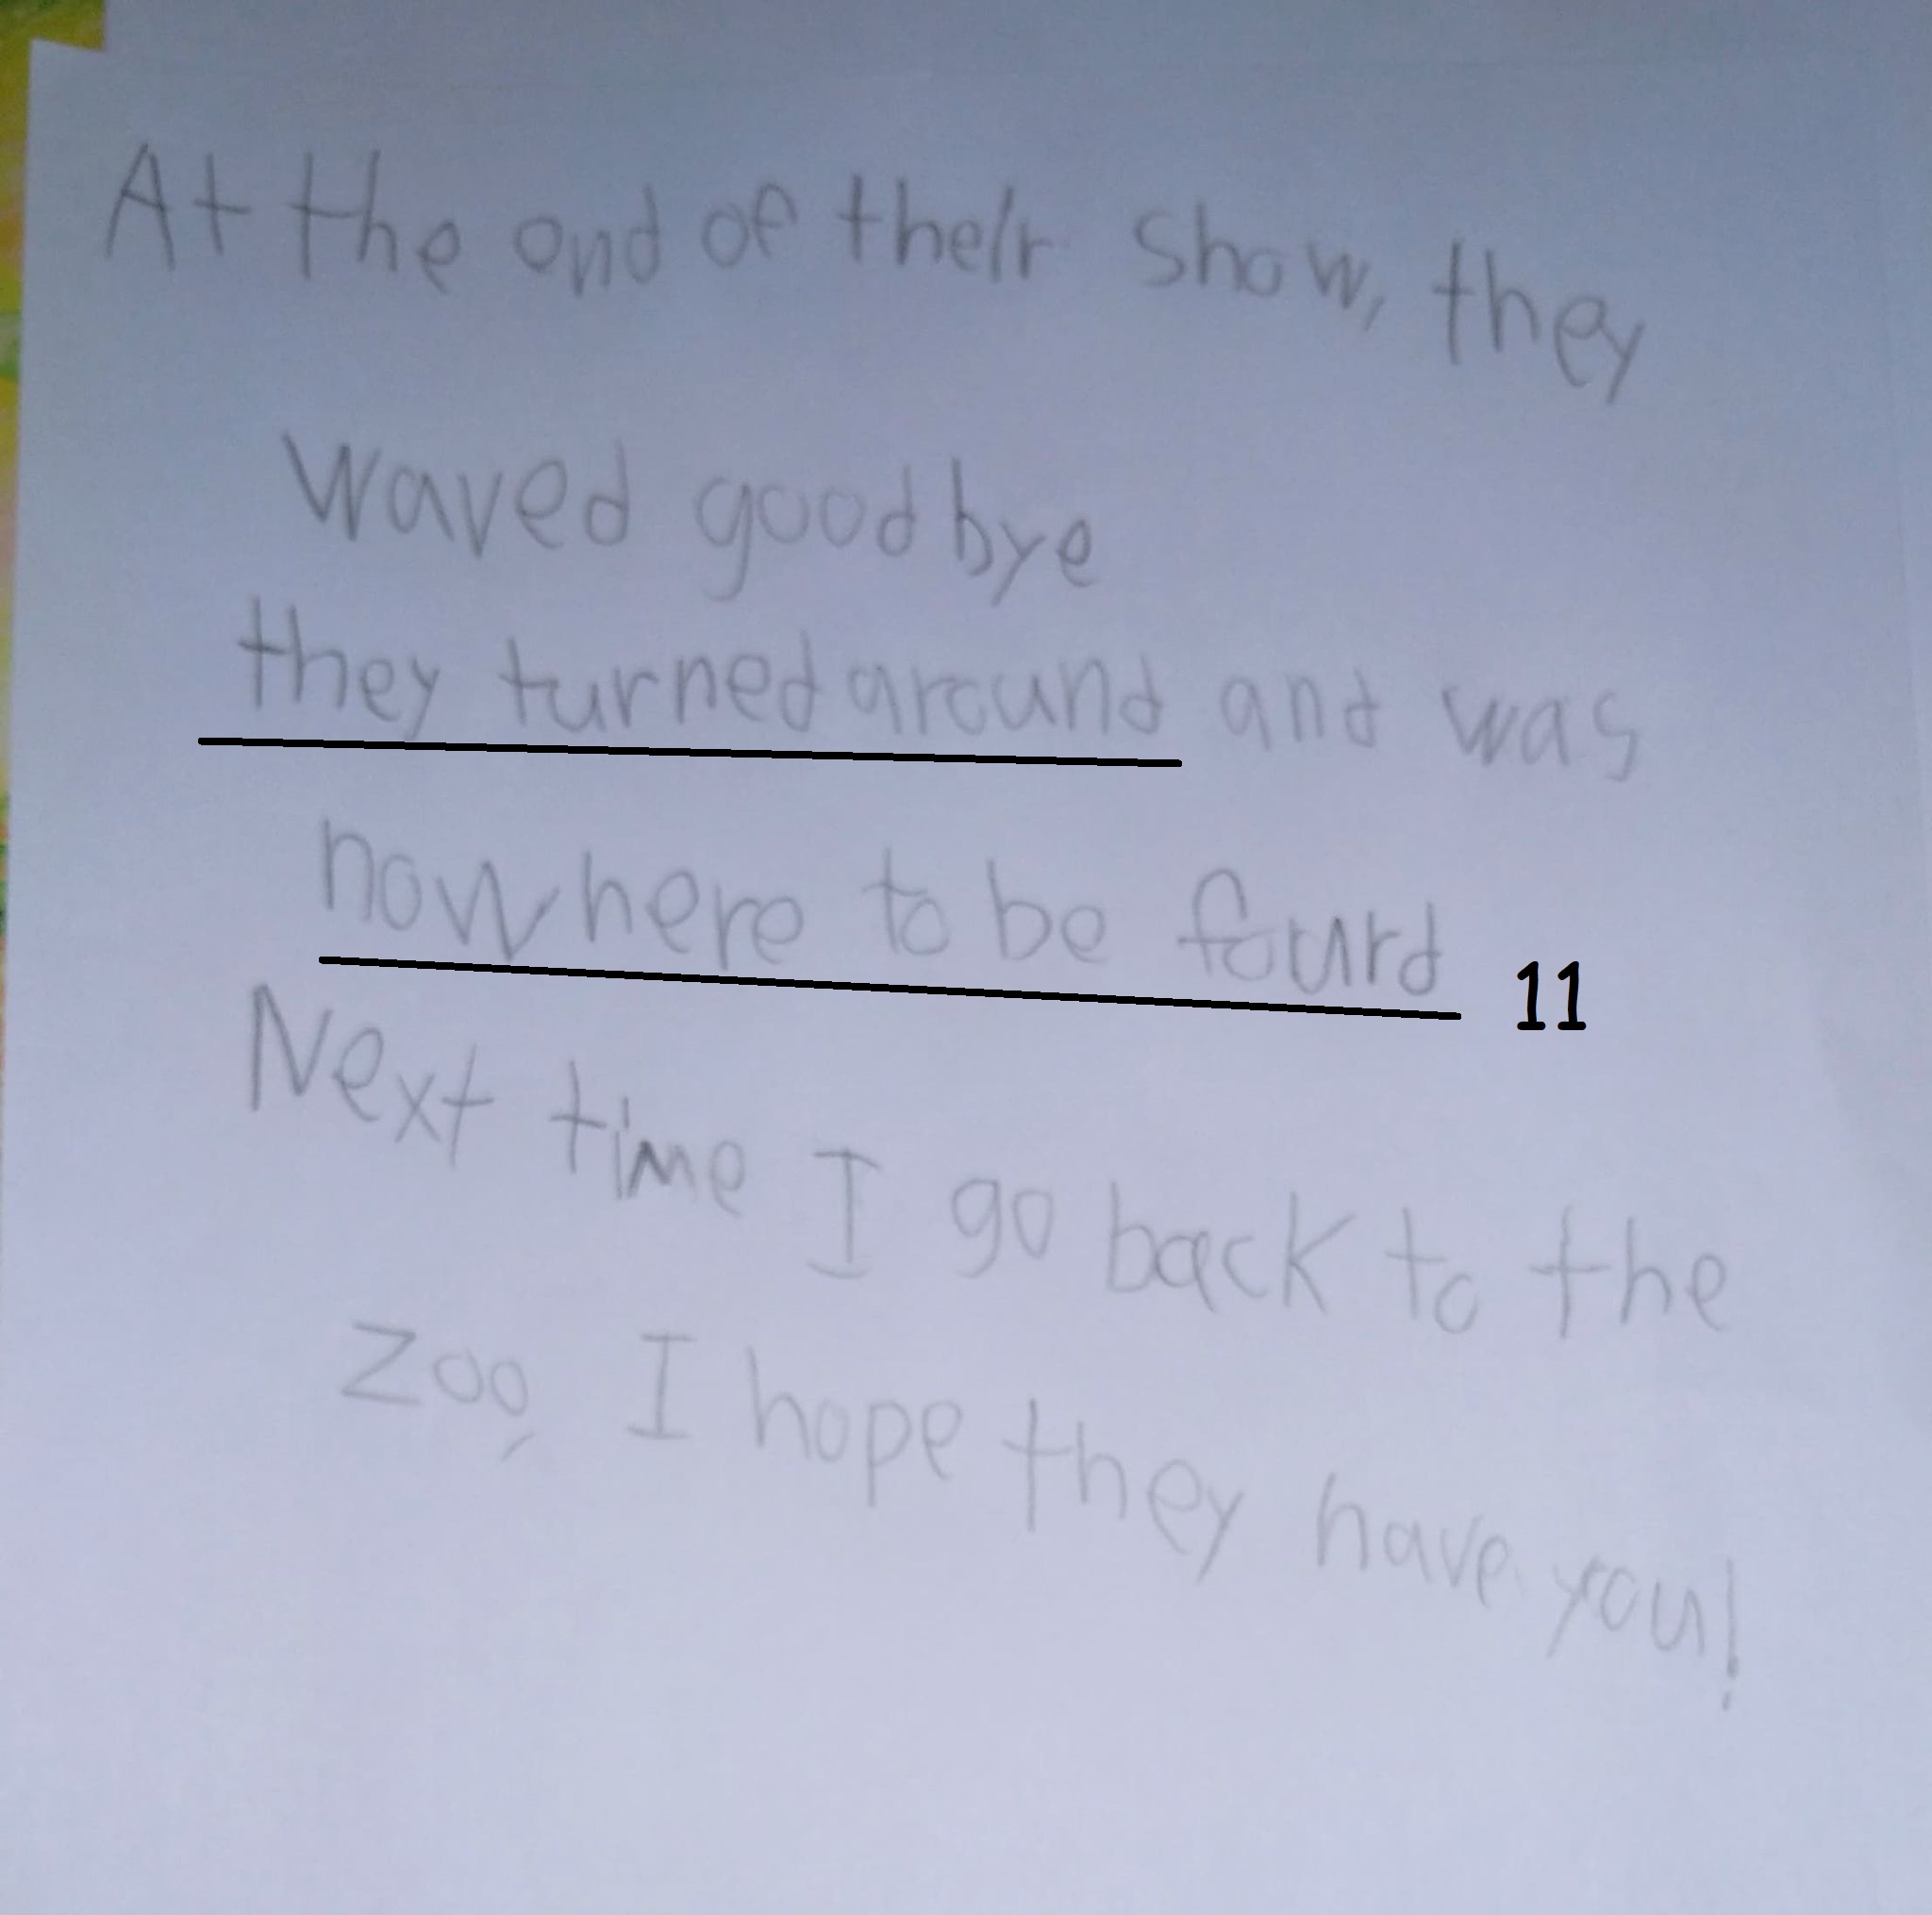 At the end of their show, they
waved goodbye
they turned around and was
nowhere to be found 11
Next time I go back to the
zoo, I hope they have you!